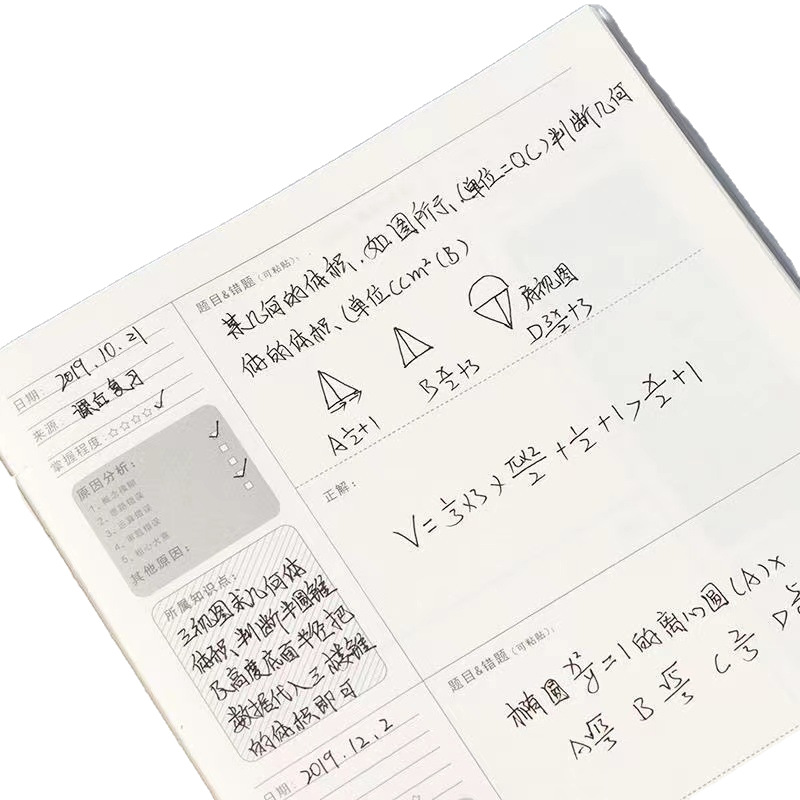 题目&错题（可粘贴）：
某几何的体积．如图所示、(单位=QC)判断几何
体的体积、(单位CCm² (B)
俯视图
A½+1
B x/2+3
D 3x/2+3
日期：2019.10.21
来源：课后复习
掌握程度：☆☆☆☆✓
原因分析：
1、概念模糊
2、思路错误
3、运算错误
4、审题错误
5、粗心大意
其他原因：
正解：
V=⅓×3×πx×2/2+½+1>x/2+1
所属知识点：
三视图求几何体
体积、判断半圆锥
及高度底面半径把
数据代入三棱锥
的体积即可
题目&错题（可粘贴）：
椭圆x²/y=1的离心圆(A)x
A √13/3 B √5/3 C 2/3 D
日期：2019.12.2